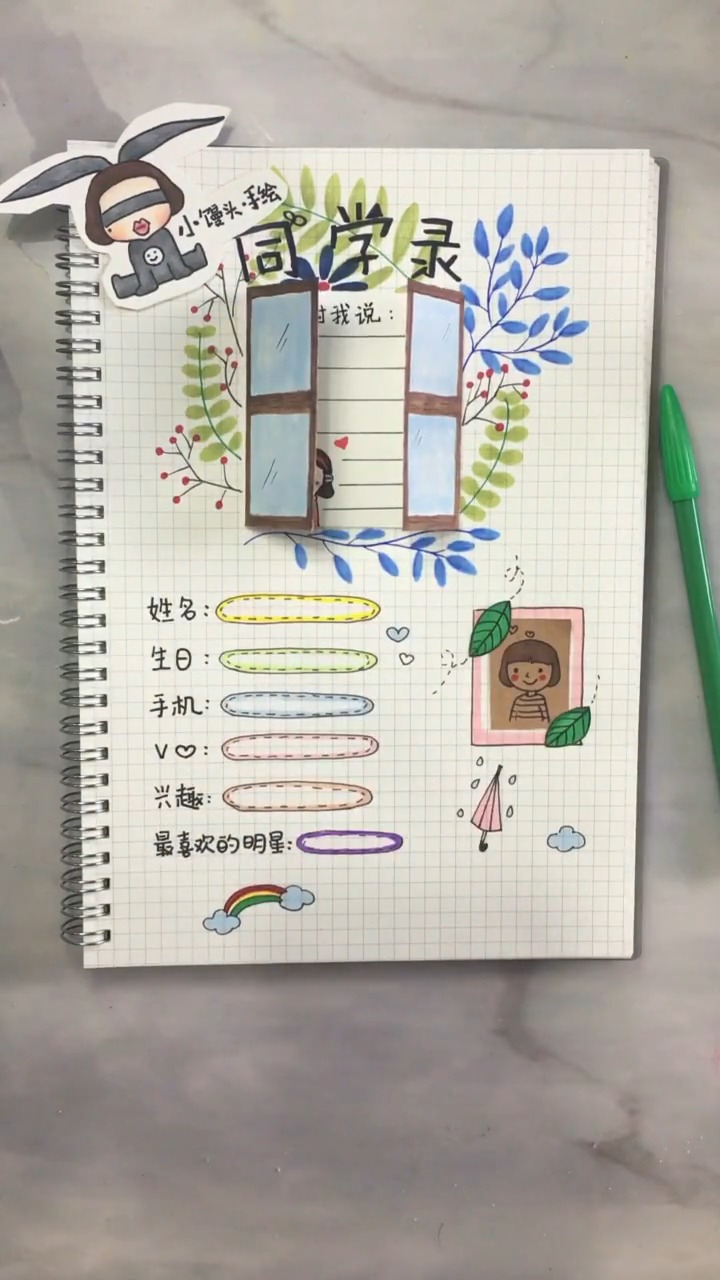 小馒头·手绘
同学录
对我说：
姓名：
生日：
手机：
V♡：
兴趣：
最喜欢的明星：